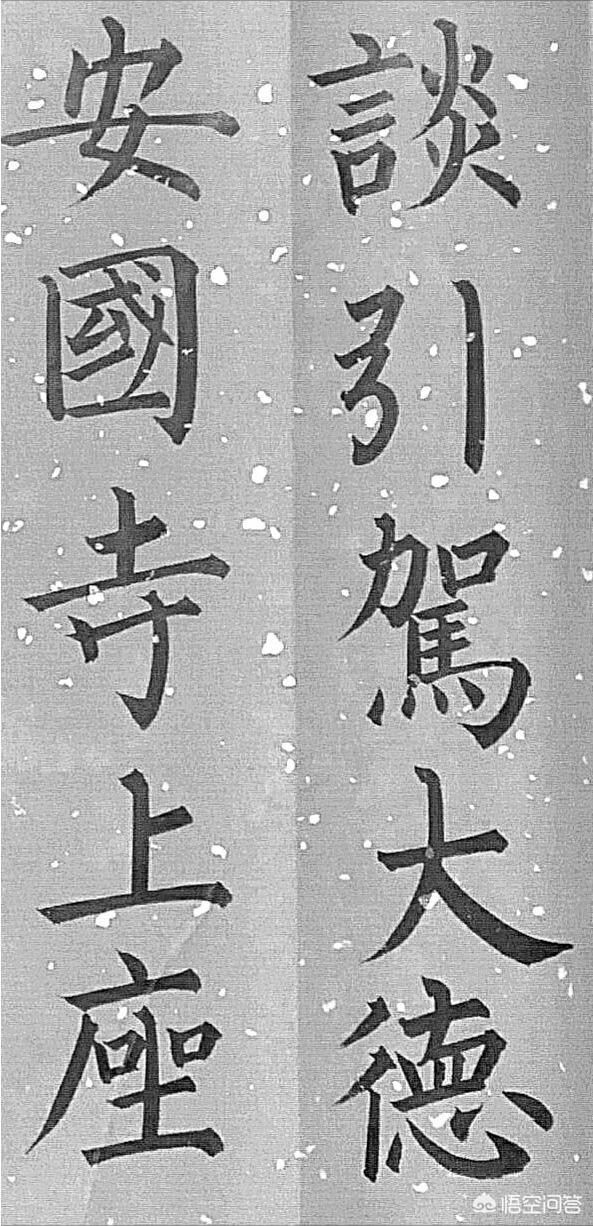 談引駕大德
安國寺上座
悟空问答